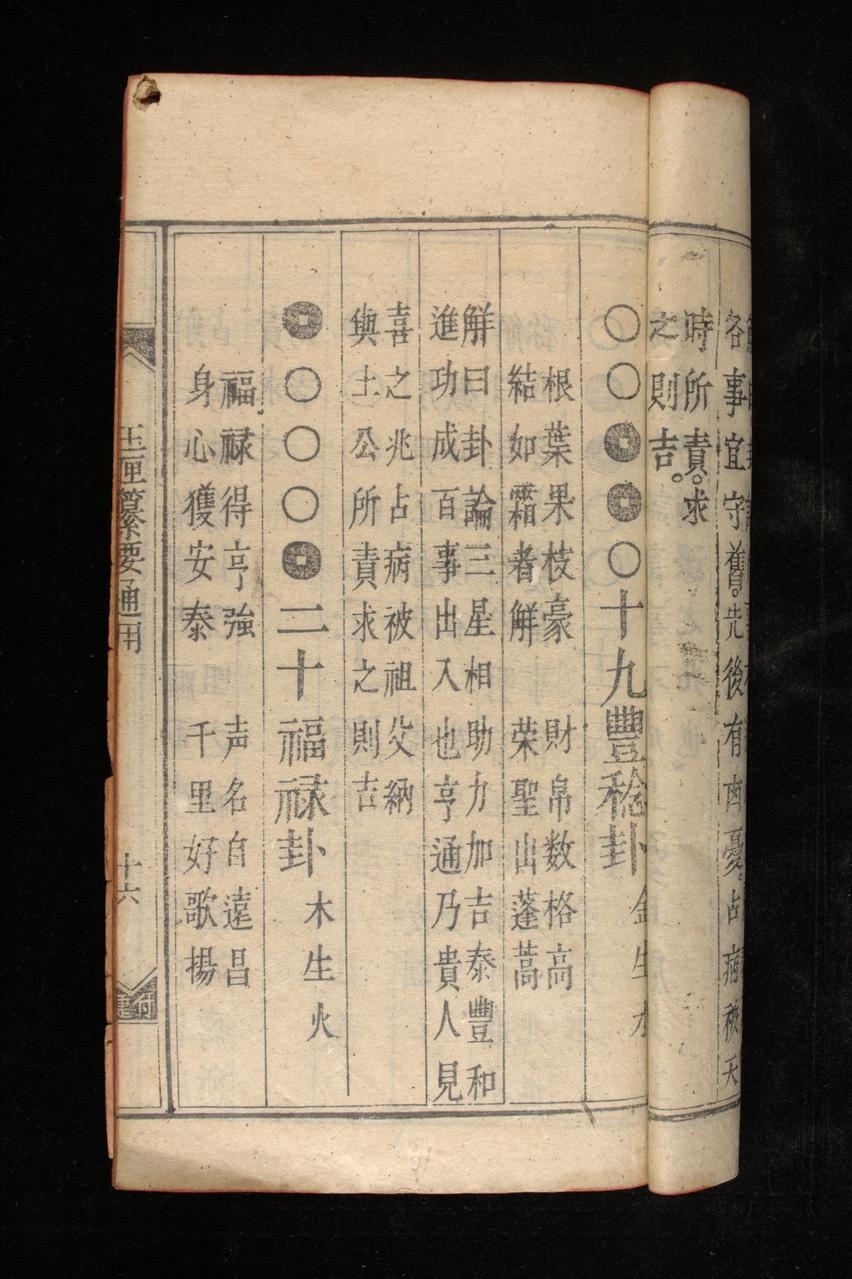 各事宜守舊。先後有商憂。占病被天
時所責。求
之則吉。
〇〇●●〇十九豐稔卦 金生水
根葉果枝豪 財帛数格高
結如霜者解 荣聖出蓬蒿
解曰卦論三星相助力加吉泰豐和
進功成百事出入也亨通乃貴人見
喜之兆占病被祖父納
與土公所責求之則吉
●〇〇〇●二十福禄卦 木生火
福禄得亨強 声名自遠昌
身心獲安泰 千里好歌揚
玉匣纂要通用
十六